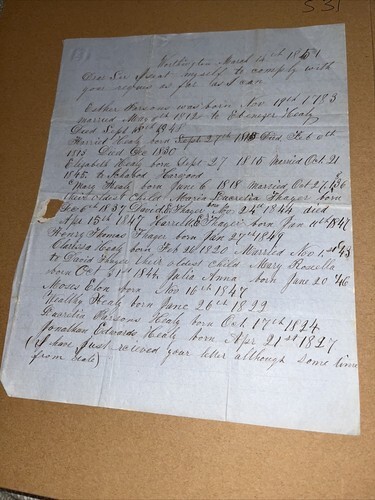 531
Worthington March 14th 1851
Dear Sir I seat myself to comply with
your request as far as I can
Esther Parsons was born Nov 19th 1783
married May 9th 1812 to Ebenezer Healy
Died Sept
Harriet Healy born Sept 27th 1813 Died Feb
1815 Died Dec 1850
Elizabeth Healy born Sept 27 1816 married Oct 21
1845 to Harwood
Mary Healy born June 6 1818 married Oct 27
their oldest Child Maria Lucretia Thayer born
1837 David E Thayer Nov 24th 1844 died
Apr 15th 1847 Harrell E Thayer born Jan 11th 1847
Henry Thomas Thayer born Jan 27th 1849
Clarissa Healy born Feb 26 1820 Married Nov 1st 43
to David Thayer their oldest child Mary Rosella
born Oct 31st 1844 Julia Anna born June 20 /46
Moses Eton born Nov 16th 1847
Wealthy Healy born June 26th 1822
Laurilia Parsons Healy born Oct 17th 1824
Jonathan Edwards Healy born Apr 21st 1827
(I have just recieved your letter although some time
from date)